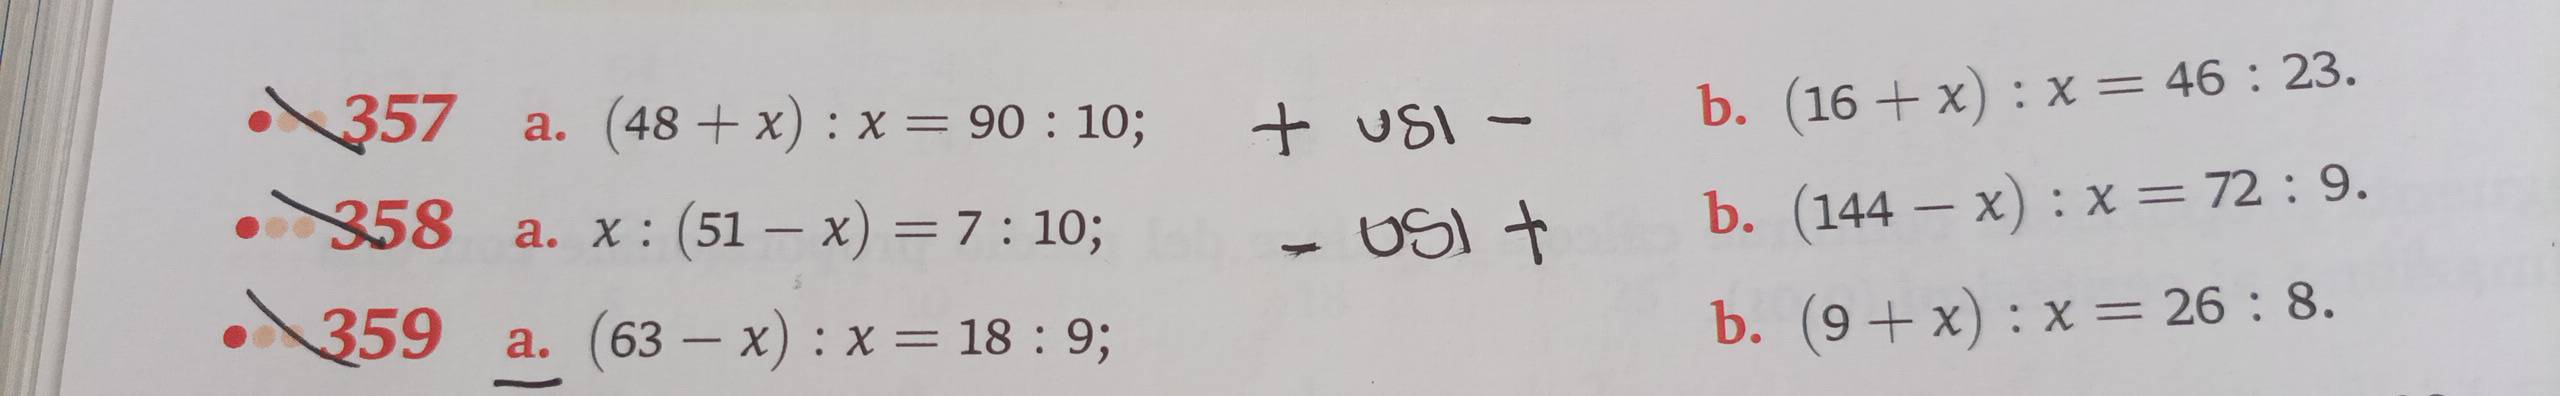 357 a. (48 + x) : x = 90 : 10; + USI - b. (16 + x) : x = 46 : 23.
358 a. x : (51 − x) = 7 : 10; - USI + b. (144 − x) : x = 72 : 9.
359 a. (63 − x) : x = 18 : 9; b. (9 + x) : x = 26 : 8.